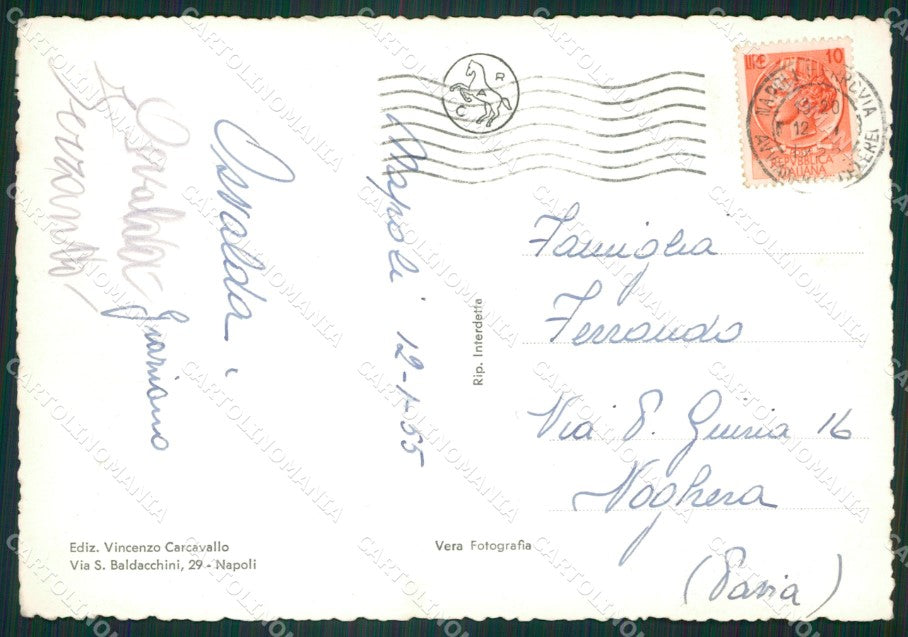 Osvalda
Bezzanto
Osvalda e
Graziano
Napoli 12-1-55
Ediz. Vincenzo Carcavallo
Via S. Baldacchini, 29 - Napoli
Rip. Interdetta
Vera Fotografia
R
A
C
LIRE 10
REPUBBLICA
ITALIANA
NAPOLI FERROVIA
12
Famiglia
Ferrando
Via P. Giuria 16
Voghera
(Pavia)
CARTOLINOMANIA